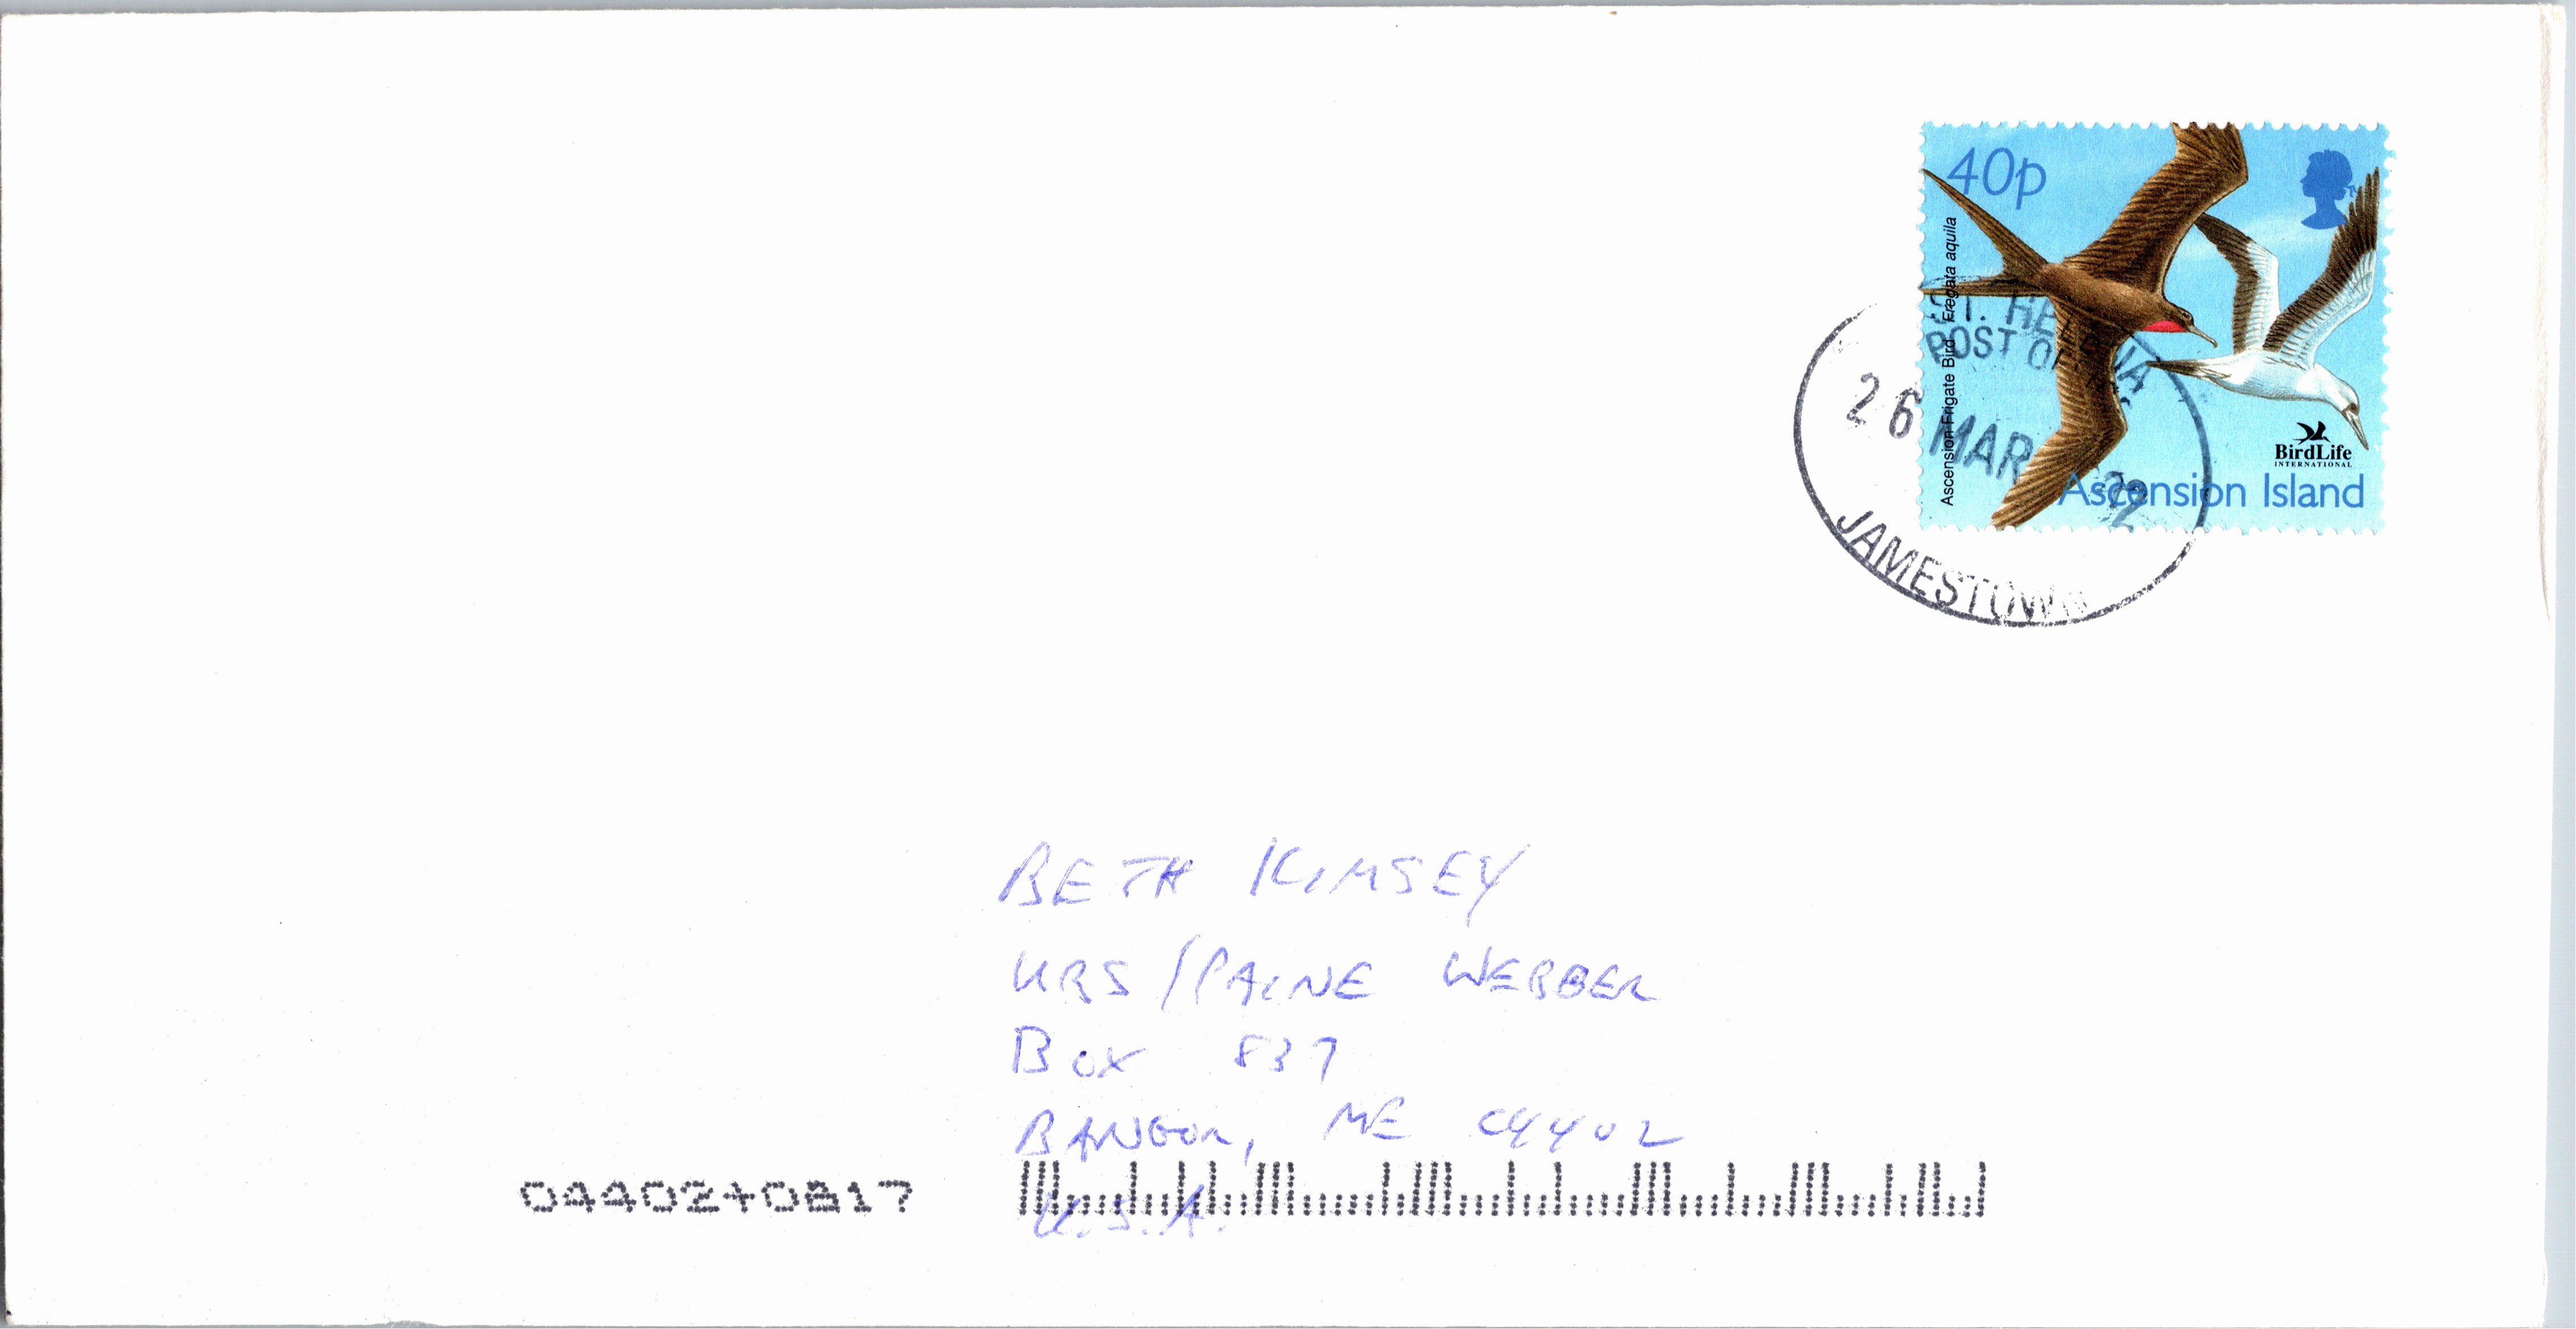 40p
Ascension Frigate Bird Fregata aquila
BirdLife
INTERNATIONAL
Ascension Island
ST. HELENA
POST OFFICE
26 MAR
JAMESTOWN
BETH KIMSEY
UBS/PAINE WEBBER
BOX 837
BANGOR, ME 04402
04402+0817
U.S.A.